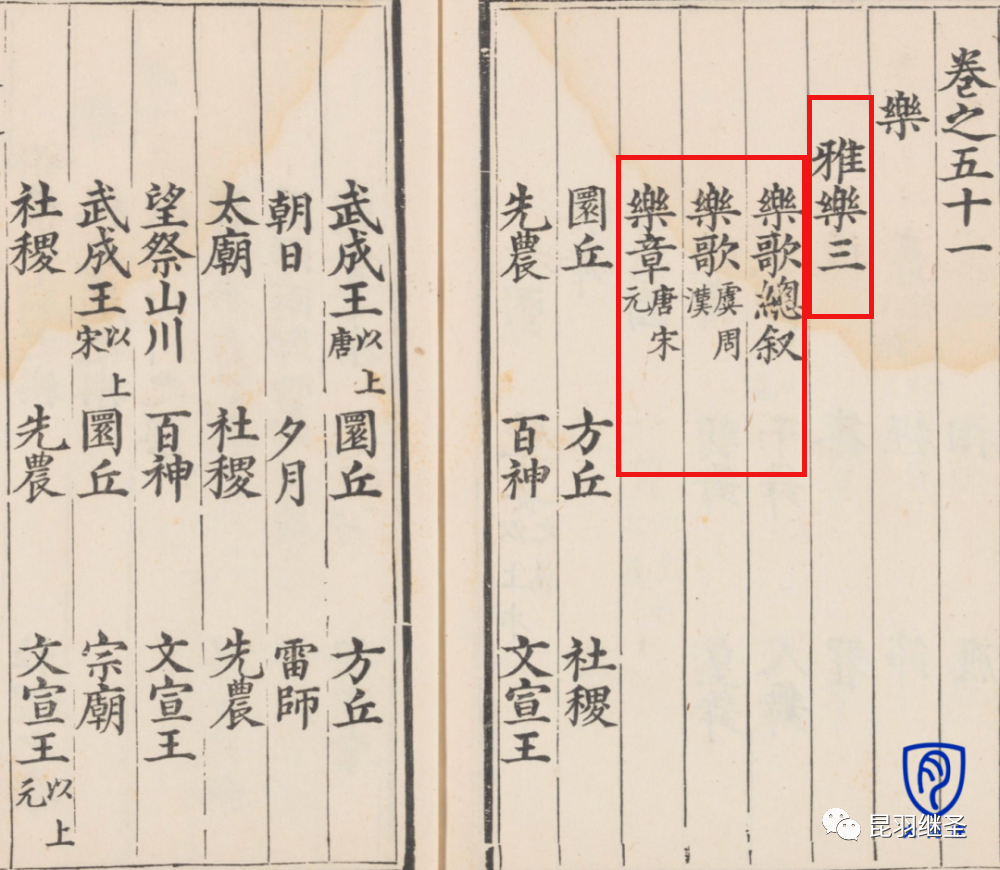 卷之五十一
樂
雅樂三
樂歌總叙
樂歌虞周漢
樂章唐宋元
圜丘 方丘 社稷
先農 百神 文宣王
武成王以上唐 圜丘 方丘
朝日 夕月 雷師
太廟 社稷 先農
望祭山川 百神 文宣王
武成王以上宋 圜丘 宗廟
社稷 先農 文宣王以上元
昆羽继圣